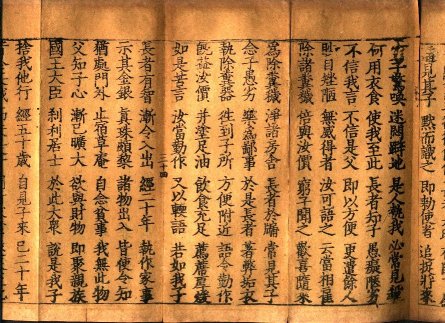 遙見其子 默而識之 即勅使者 追捉將來
窮子驚喚 迷悶躃地 是人執我 必當見殺
何用衣食 使我至此 長者知子 愚癡狹劣
不信我言 不信是父 即以方便 更遣餘人
眇目矬陋 無威德者 汝可語之 云當相雇
除諸糞穢 倍與汝價 窮子聞之 歡喜隨來
為除糞穢 淨諸房舍 長者於牖 常見其子
念子愚劣 樂為鄙事 於是長者 著弊垢衣
執除糞器 往到子所 方便附近 語令勤作
既益汝價 并塗足油 飲食充足 薦席厚煖
如是苦言 汝當勤作 又以輭語 若如我子
三十四
長者有智 漸令入出 經二十年 執作家事
示其金銀 真珠頗黎 諸物出入 皆使令知
猶處門外 止宿草菴 自念貧事 我無此物
父知子心 漸已曠大 欲與財物 即聚親族
國王大臣 剎利居士 於此大衆 說是我子
捨我他行 經五十歲 自見子來 已二十年